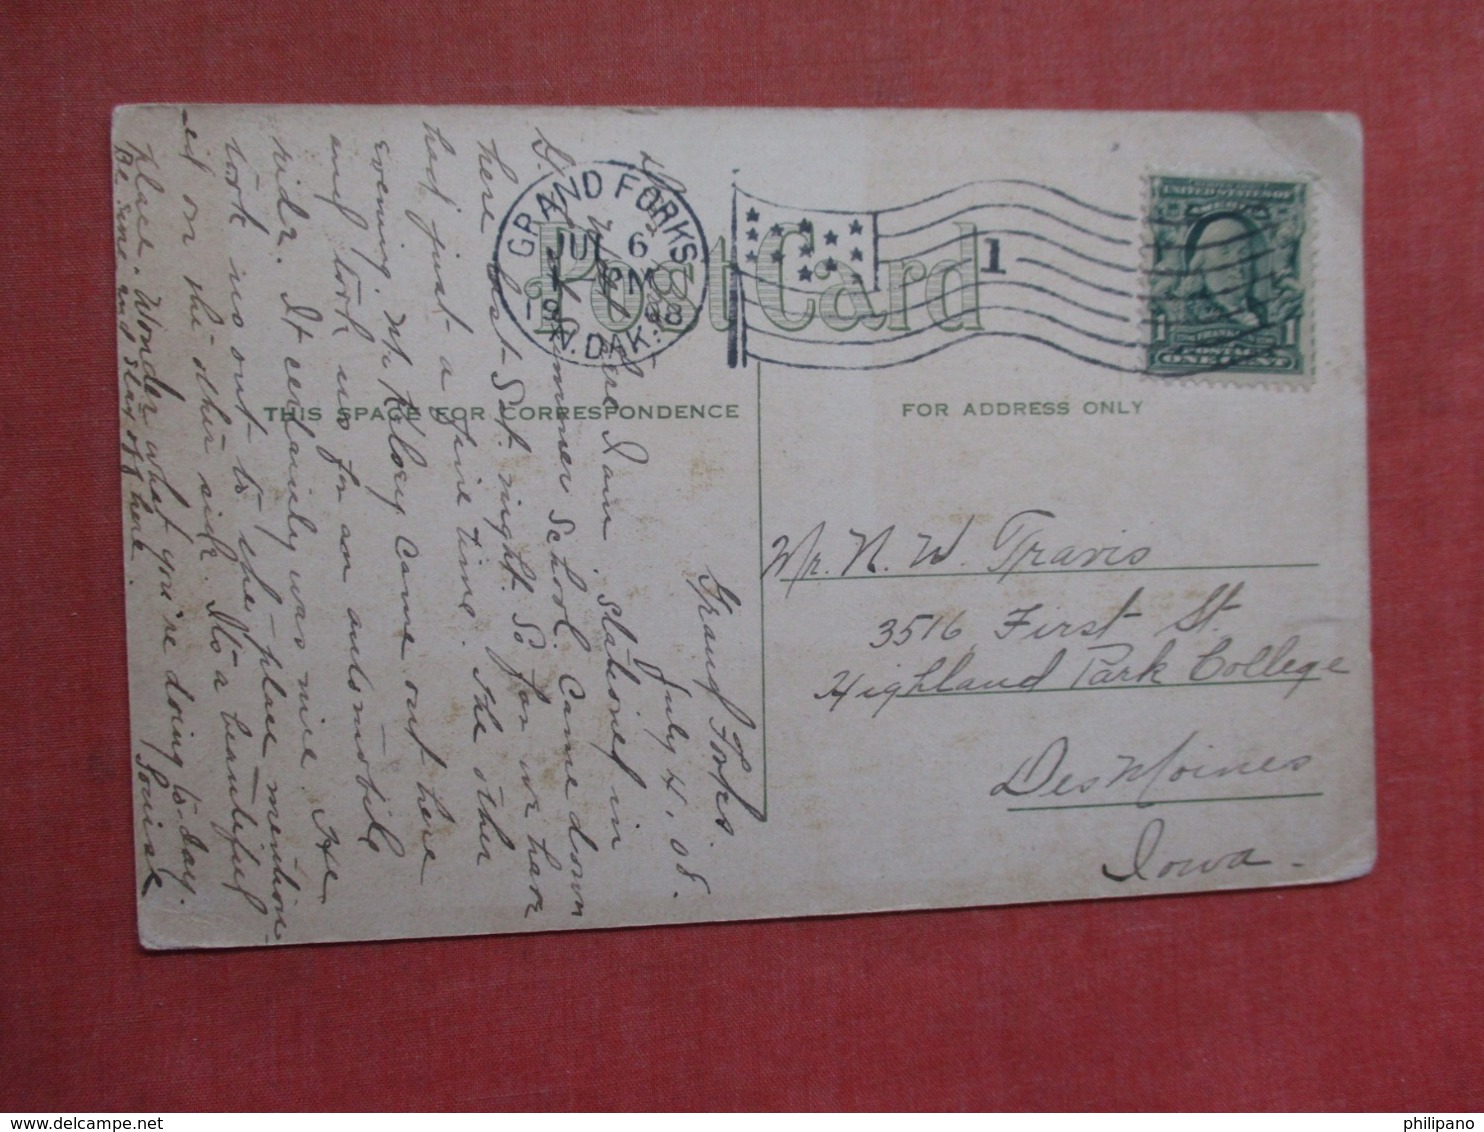 Post Card
THIS SPACE FOR CORRESPONDENCE
FOR ADDRESS ONLY
GRAND FORKS
JUL 6
PM
1908
N. DAK.
1
UNITED STATES OF AMERICA
1 1
ONE CENT
Mr. N. W. Travis
3516 First St.
Highland Park College
Des Moines
Iowa.
Grand Forks.
July 4, 08.
Well here I am stationed in
Summer School. Came down
here last Sat. night. So far we have
had just a fine time. The other
evening Mr. came out here
and took us for an automobile
ride. It certainly was nice. He
took us out to the place mention-
ed on the other side. It's a beautiful
place. Wonder what you're doing to-day.
Be sure and stop off here. Louise
philipano